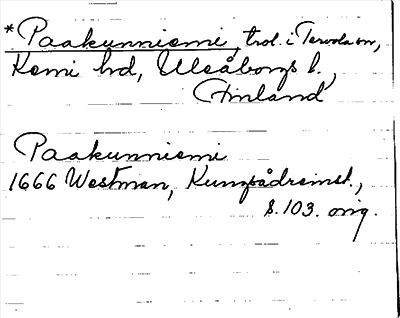 *Paakunniemi, trol. i Tervola sn,
Kemi hd, Uleåborgs l.,
Finland
Paakunniemi
1666 Westman, Kungsådrainst.,
s. 103. orig.